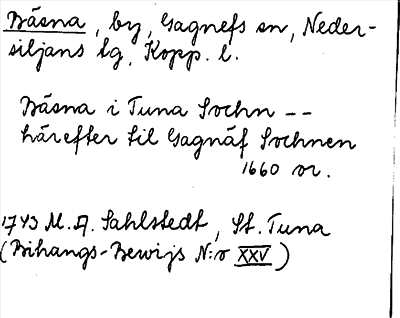 Bäsna, by, Gagnefs sn, Neder-
siljans tg, Kopp. l.
Bäsna i Tuna Sochn --
härefter til Gagnäf Sochnen
1660 or.
1743 M. A. Sahlstedt, St. Tuna
(Bihangs-Bewijs N:o XXV)